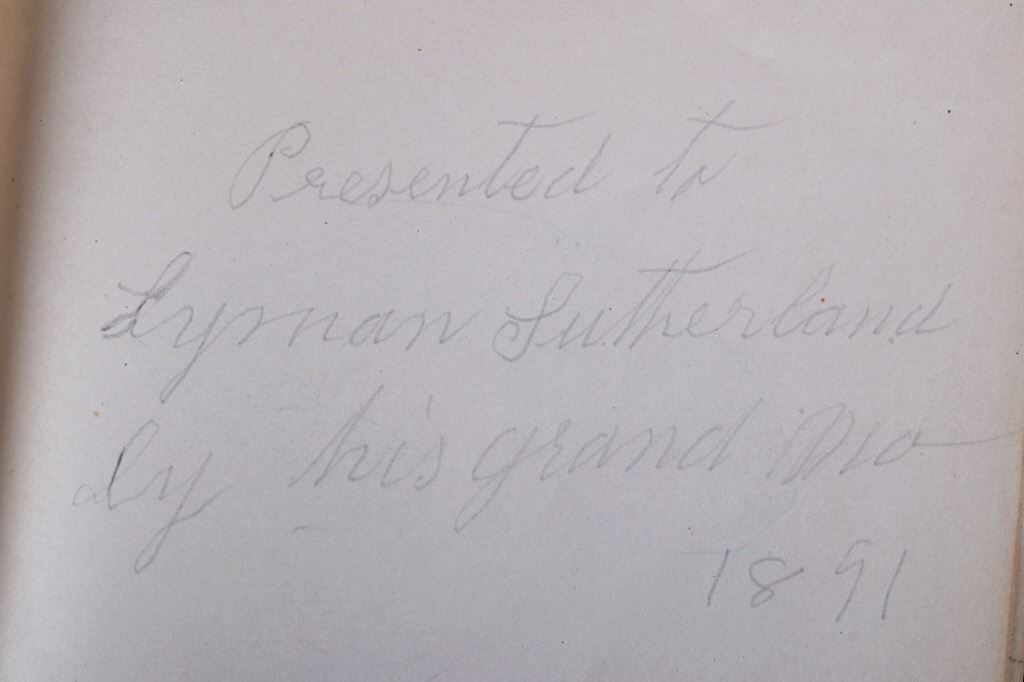 Presented to
Lyman Sutherland
by his grand Mo
1891